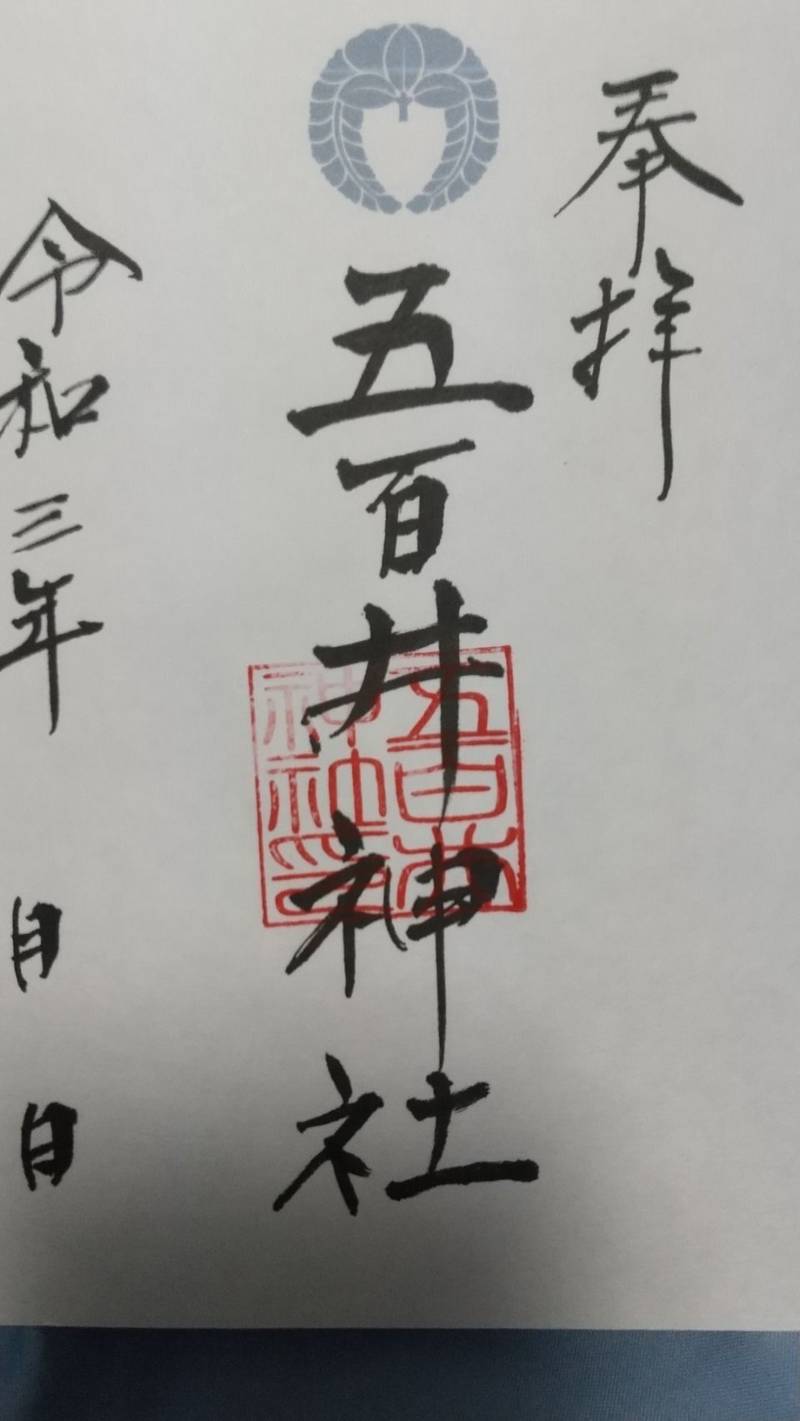 奉拝
五百井神社
五百井神社印
令和三年 月 日